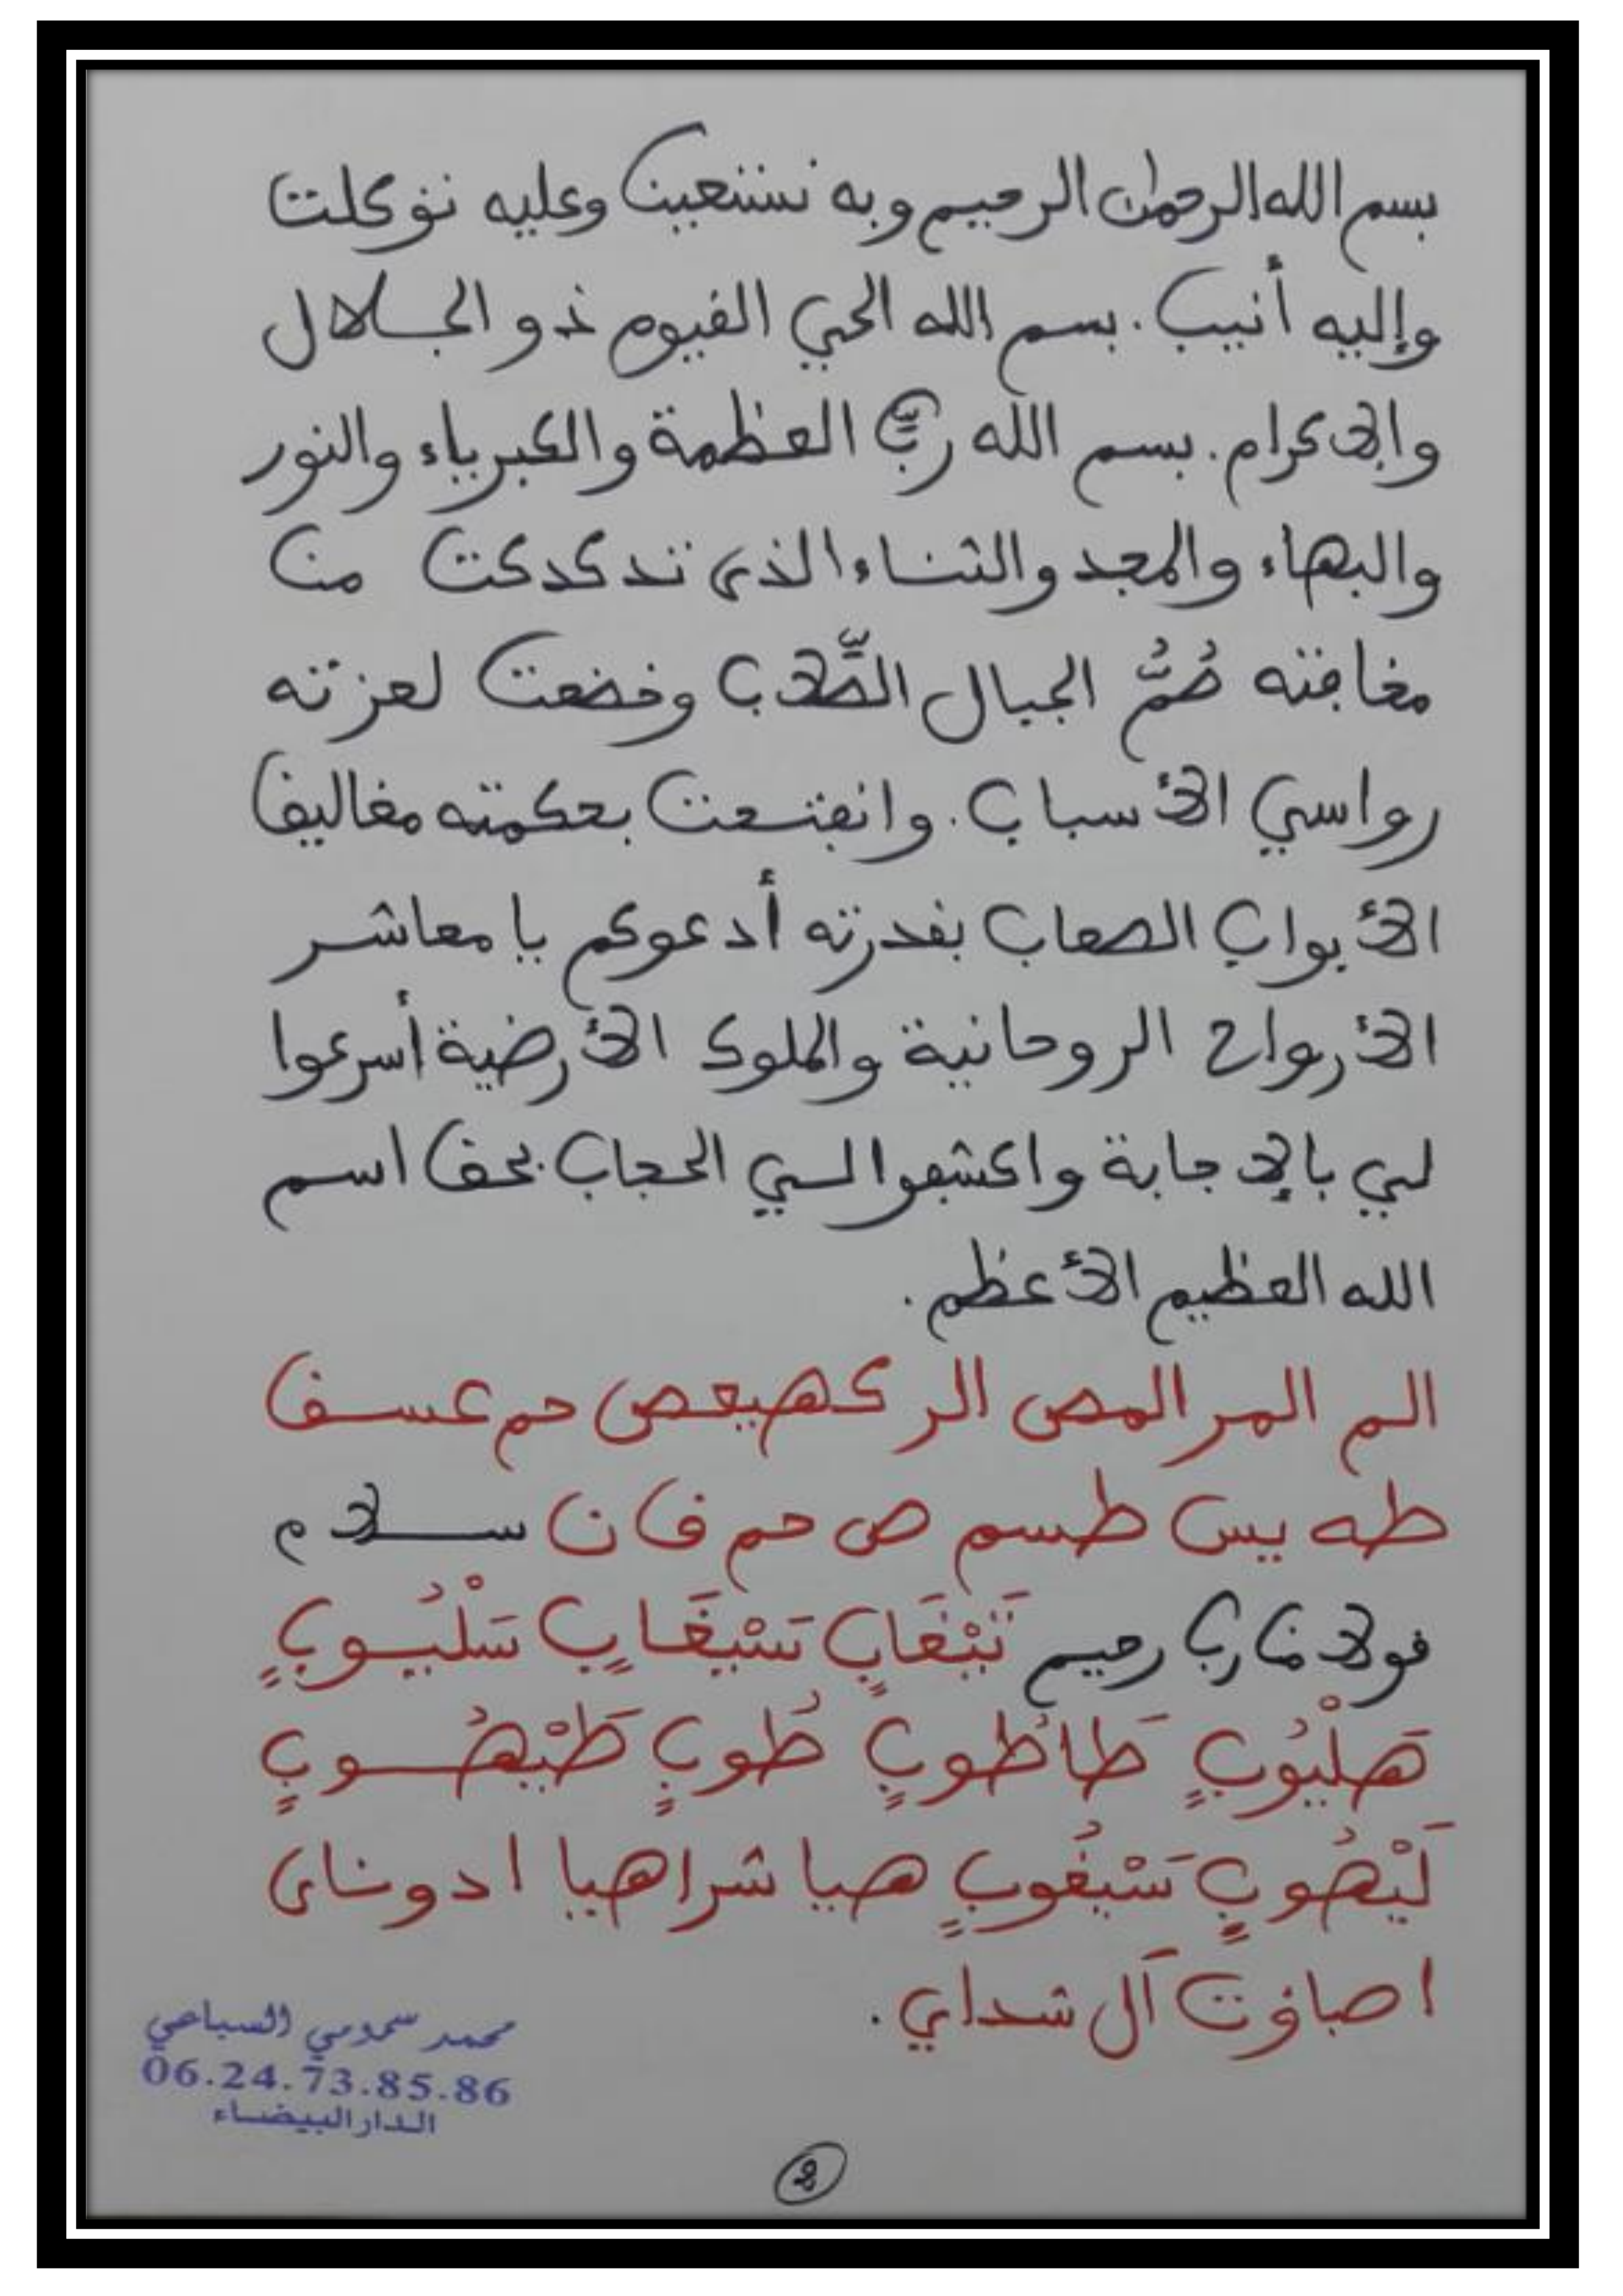 بسم الله الرحمٰن الرحيم وبه نستعين وعليه توكلت
وإليه أنيب . بسم الله الحي القيوم ذو الجلال
والإكرام . بسم الله ربِّ العظمة والكبرياء والنور
والبهاء والمجد والثناء الذي تدكدكت من
مخافته صُمُّ الجبال الصِّلاب وخضعت لعزته
رواسي الأسباب . وانفتحت بحكمته مغاليق
الأبواب الصعاب بقدرته أدعوكم يا معاشر
الأرواح الروحانية والملوك الأرضية أسرعوا
لي بالإجابة واكشفوا لي الحجاب بحق اسم
الله العظيم الأعظم .
الم المر المص الر كهيعص حم عسق
طه يس طسم ص حم ق ن سلام
قولا من رب رحيم
هَلْيُوبٍ طَاطُوبٍ طُوبٍ طَيْهُوبٍ
لَيْهُوبٍ هيا شراهيا ادوناى
اصباوت آل شداي .
محمد سمومي السباعي
06.24.73.85.86
الدار البيضاء